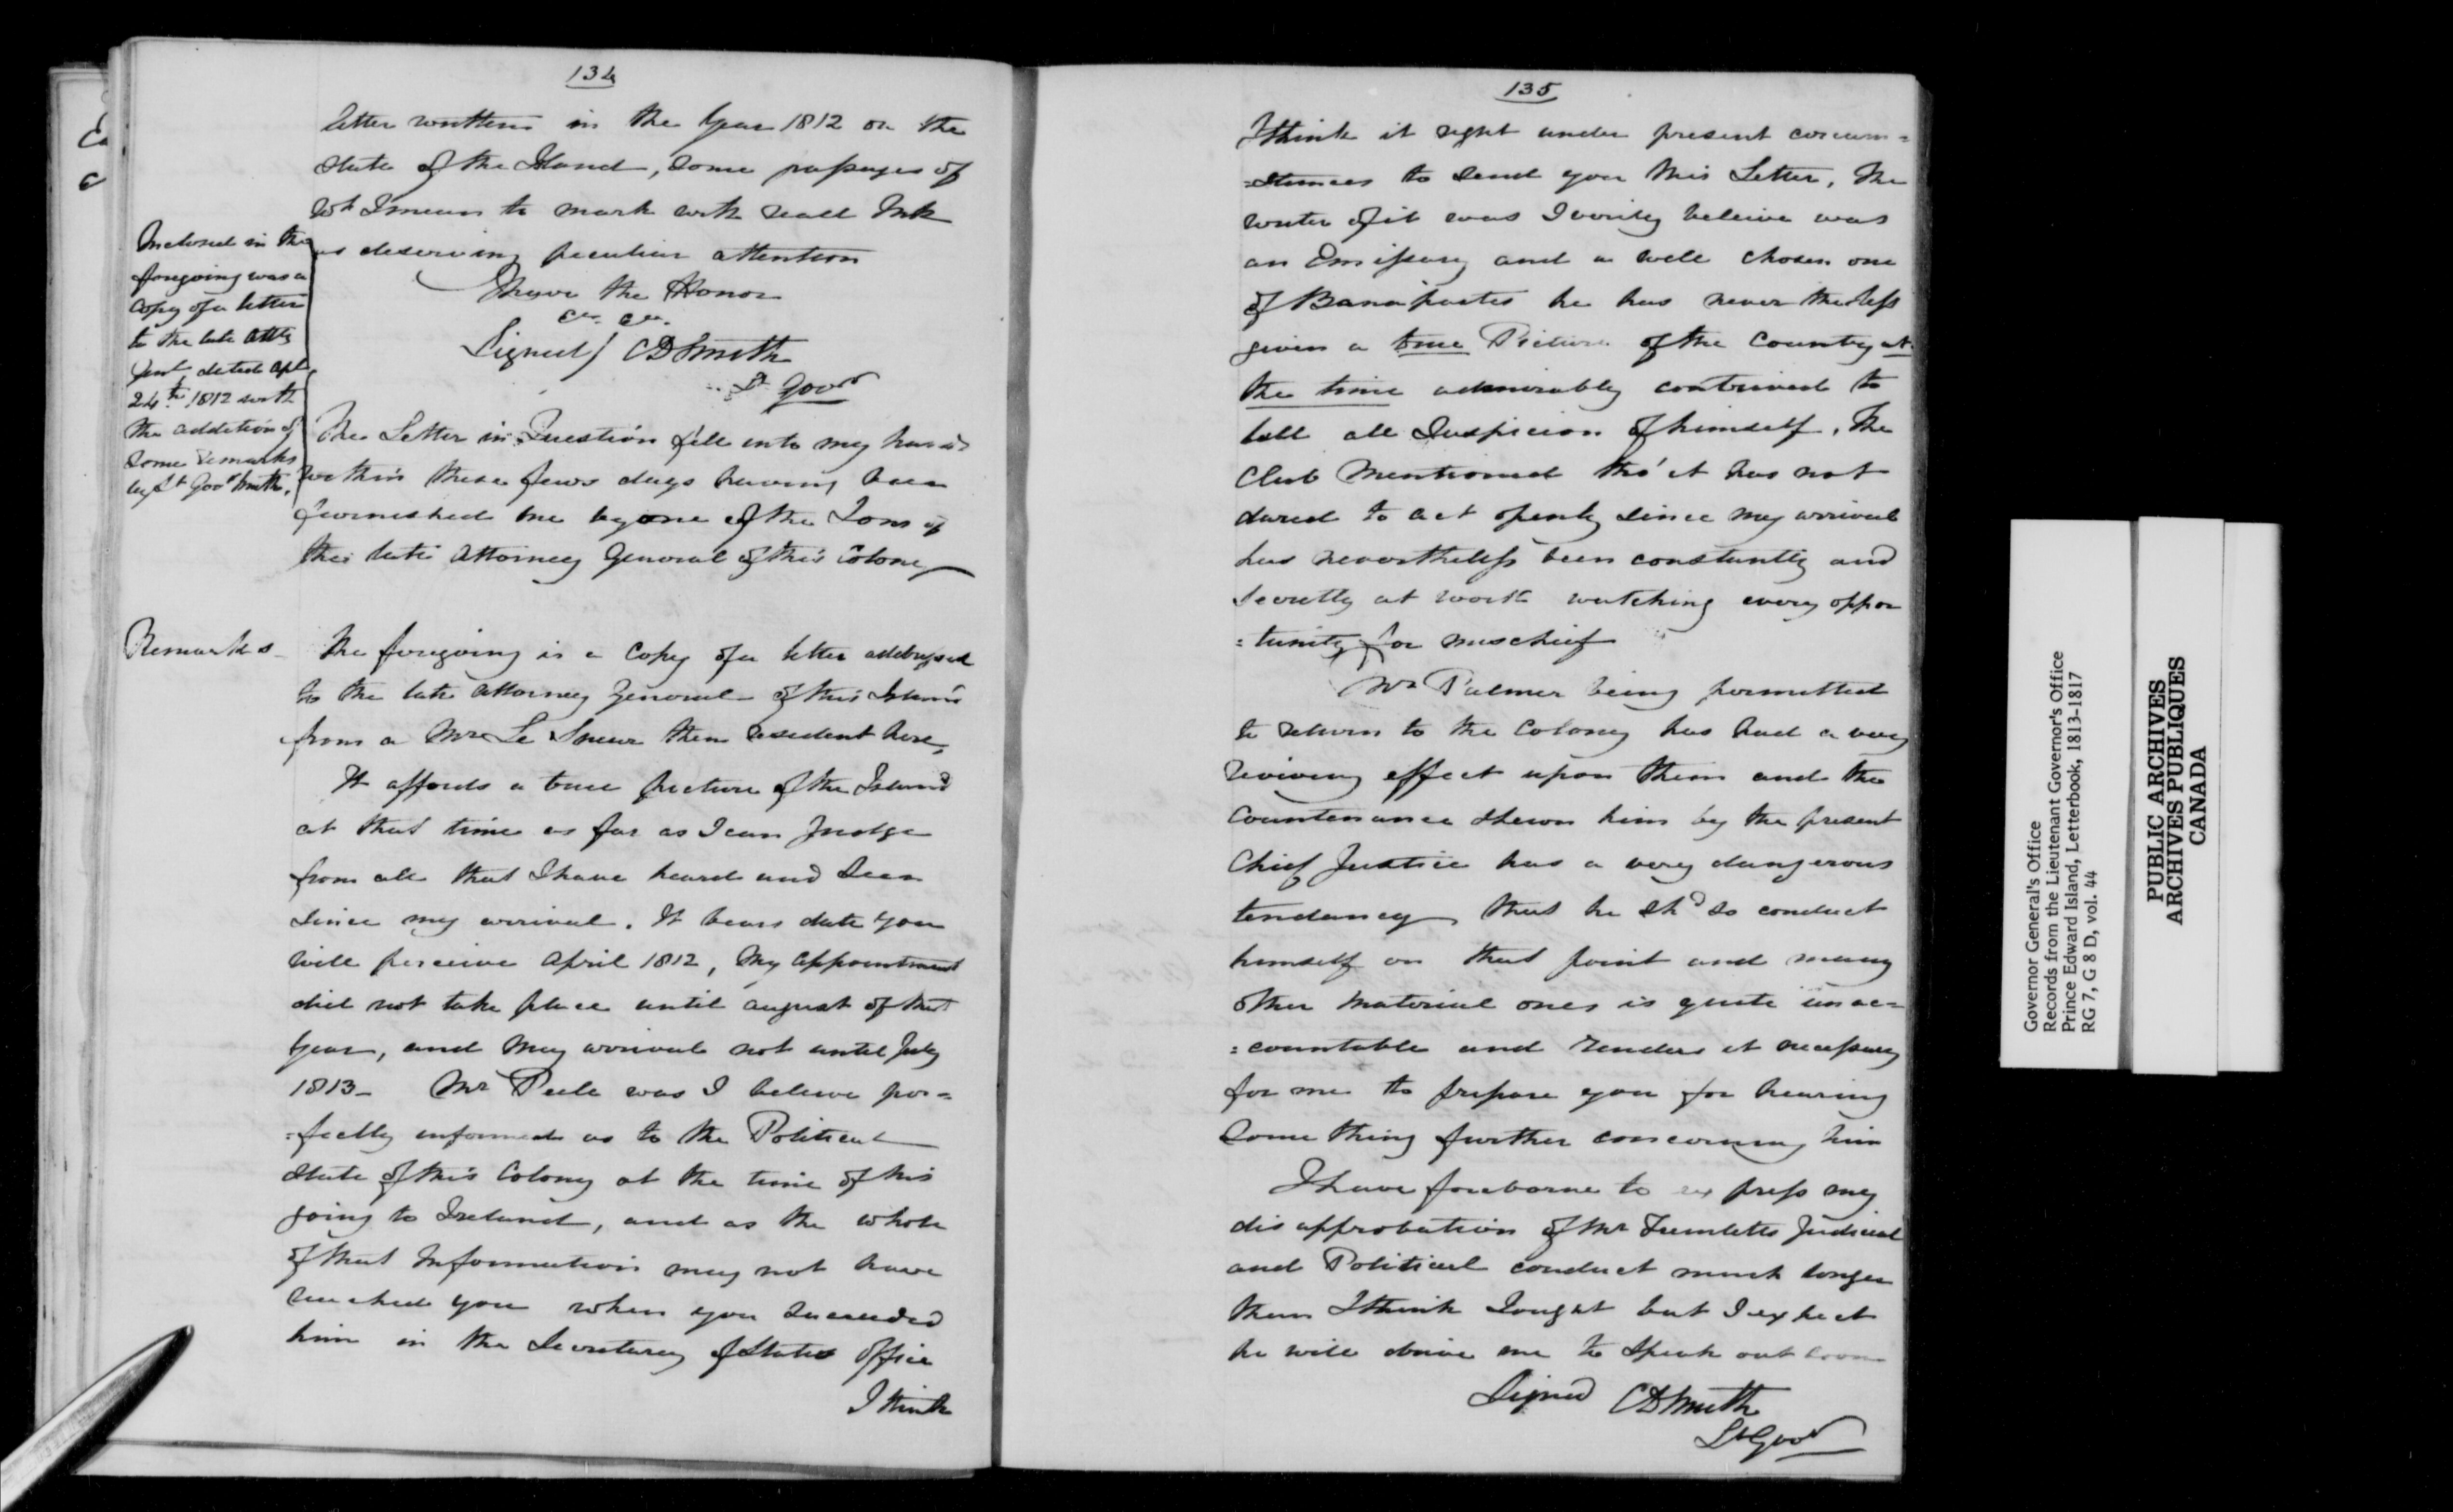 134
letter written in the Year 1812 on the
State of the Island, some passages of
wh I mean to mark with read Ink
as deserving peculiar attention
I have the Honor
&c. &c.
Signed / CDSmith
Lt Govr
Inclosed in the
foregoing was a
Copy of a letter
to the late Atty
Genl dated Apl
24th 1812 with
the addition of
some Remarks
by Lt Govr Smith.
The Letter in Question fell into my hands
within these few days having been
furnished me by one of the Sons of
the late Attorney General of this Colony
Remarks
The foregoing is a Copy of a letter addressed
to the late Attorney General of this Island
from a Mr Le Sueur then resident here,
It affords a true picture of the Island
at that time as far as I can Judge
from all that I have heard and Seen
Since my arrival. It bears date you
will perceive April 1812, My appointment
did not take place until August of that
Year, and my arrival not until July
1813 - Mr Peele was I beleive per=
=fectly informed as to the Political
State of this Colony at the time of his
going to Ireland, and as the whole
of that Information may not have
reached you when you Succeeded
him in the Secretary of States Office
I think
135
I think it right under present circum=
=stances to Send you this Letter, The
writer of it was I verily beleive was
an Emissary and a well chosen one
of Bonapartes he has never the less
given a true Picture of the Country at
the time admirably contrived to
lull all Suspicion of himself. The
Club Mentioned tho' it has not
dared to act openly Since my arrival
has nevertheless been constantly and
Secretly at work watching every oppor
=tunity for mischief
Mr Palmer being permitted
to return to the Colony has had a very
reviving effect upon them and the
Countenance Shewn him by the present
Chief Justice has a very dangerous
tendancy, that he shd so conduct
himself on that point and many
other Material ones is quite unac=
=countable and renders it necessary
for me to prepare you for hearing
Some thing further concerning him
I have foreborne to express my
disapprobation of Mr Tremletts Judicial
and Political conduct much longer
than I think I ought but I expect
he will drive me to Speak out soon
Signed CDSmith
Lt Govr
Governor General's Office
Records from the Lieutenant Governor's Office
Prince Edward Island, Letterbook, 1813-1817
RG 7, G 8 D, vol. 44
PUBLIC ARCHIVES
ARCHIVES PUBLIQUES
CANADA